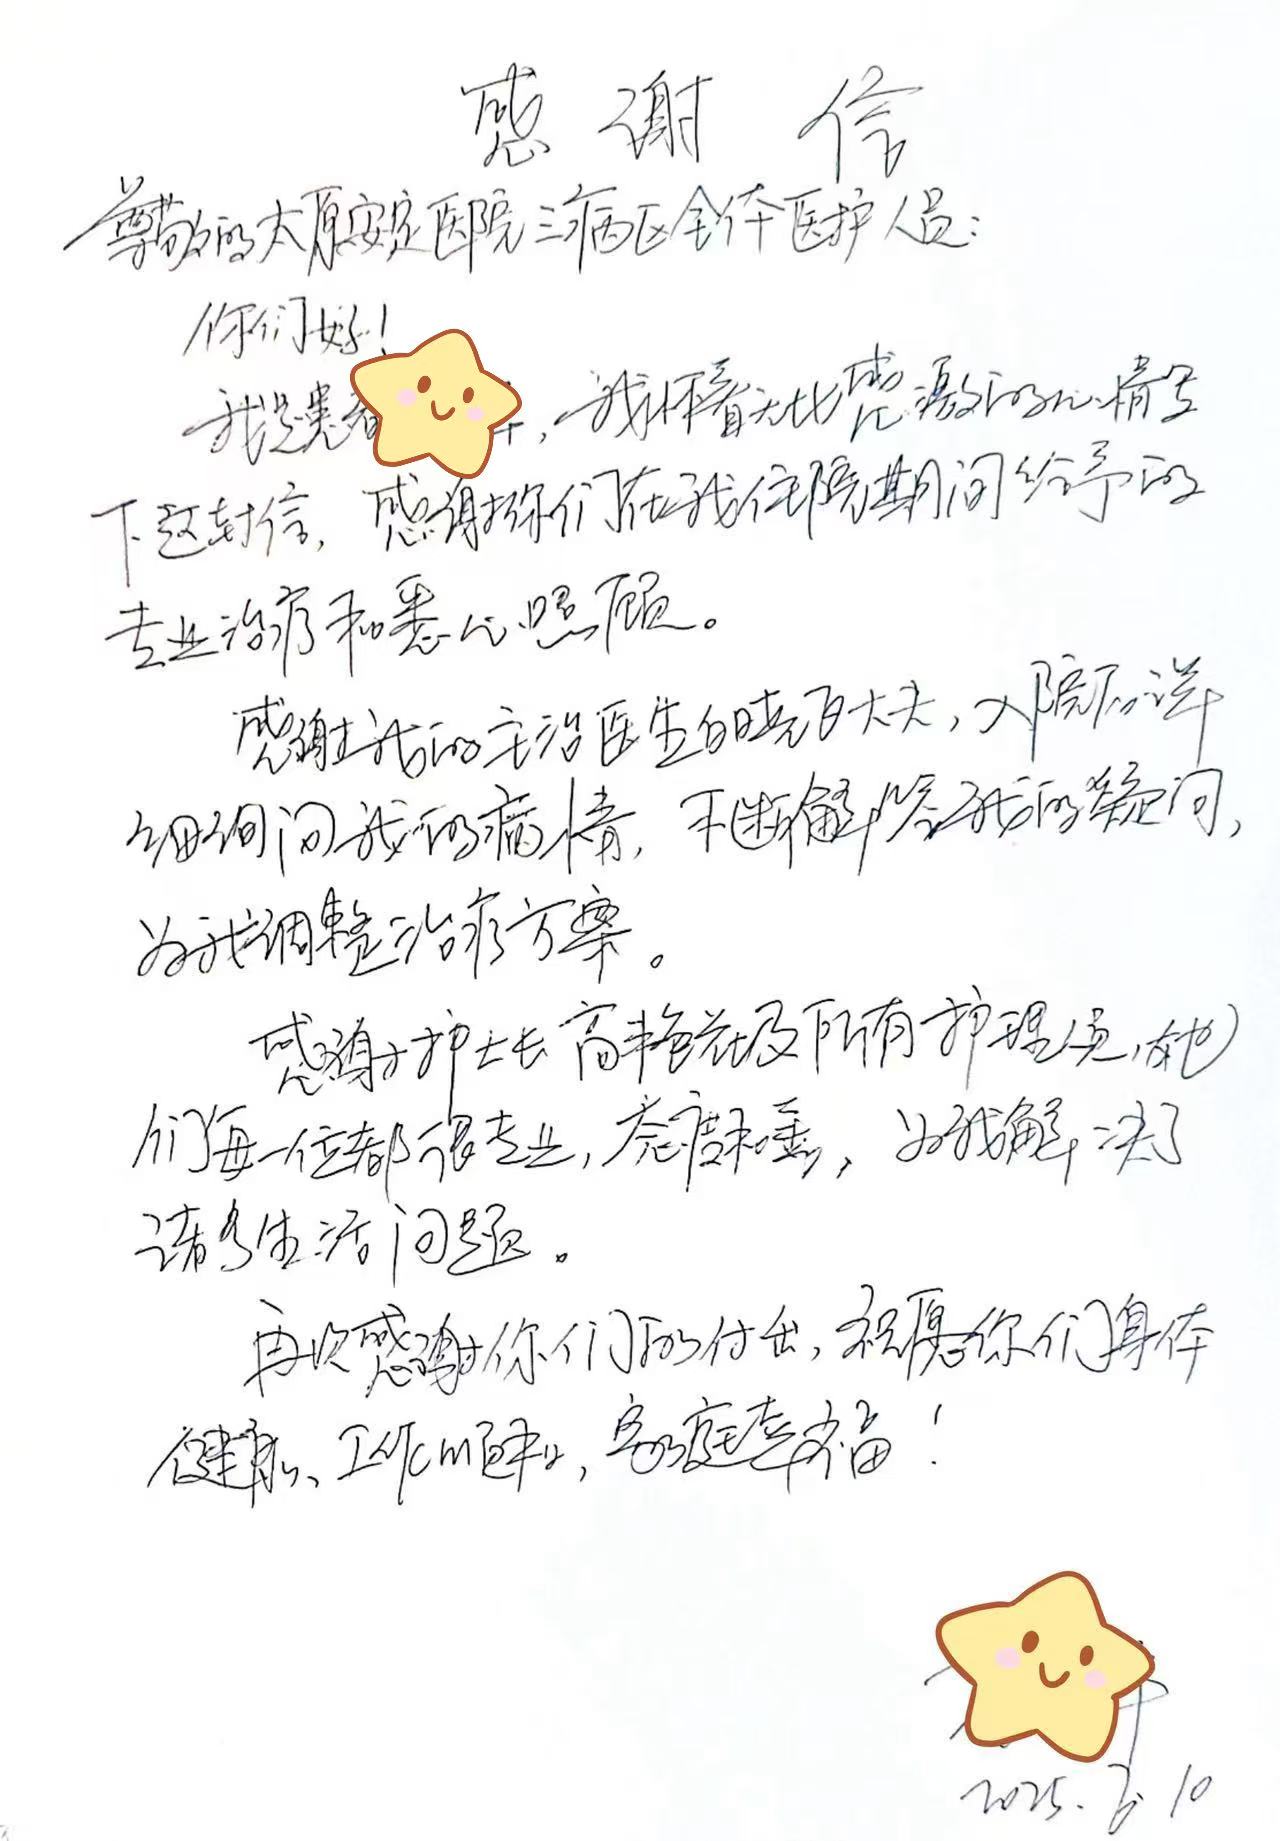 感谢信
尊敬的太原安定医院三病区全体医护人员：
你们好！
我是患者，我怀着无比感激的心情写
下这封信，感谢你们在我住院期间给予的
专业治疗和悉心照顾。
感谢我的主治医生白晓百大夫，入院后详
细询问我的病情，不断解答我的疑问，
为我调整治疗方案。
感谢护士长高艳及所有护理员，她
们每一位都很专业，态度和蔼，为我解决了
诸多生活问题。
再次感谢你们的付出，祝愿你们身体
健康、工作顺利，家庭幸福！
2025.6.10